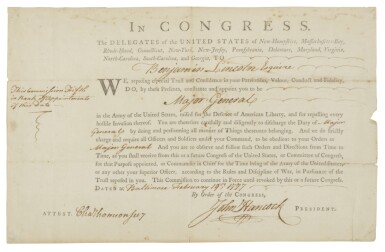 IN CONGRESS.
The DELEGATES of the UNITED STATES of New-Hampshire, Massachusetts-Bay,
Rhode-Island, Connecticut, New-York, New-Jersey, Pennsylvania, Delaware, Maryland, Virginia,
North-Carolina, South-Carolina, and Georgia, TO
Benjamin Lincoln Esquire
WE, reposing especial Trust and Confidence in your Patriotism, Valour, Conduct and Fidelity,
DO, by these Presents, constitute and appoint you to be
Major General
in the Army of the United States, raised for the Defence of American Liberty, and for repelling every
hostile Invasion thereof. You are therefore carefully and diligently to discharge the Duty of Major
General by doing and performing all manner of Things thereunto belonging. And we do strictly
charge and require all Officers and Soldiers under your Command, to be obedient to your Orders as
Major General And you are to observe and follow such Orders and Directions from Time to
Time, as you shall receive from this or a future Congress of the United States, or Committee of Congress,
for that Purpose appointed, or Commander in Chief for the Time being of the Army of the United States,
or any other your superior Officer, according to the Rules and Discipline of War, in Pursuance of the
Trust reposed in you. This Commission to continue in Force until revoked by this or a future Congress.
DATED at Baltimore February 19th 1777
By Order of the CONGRESS,
John Hancock PRESIDENT.
ATTEST Cha Thomson secy